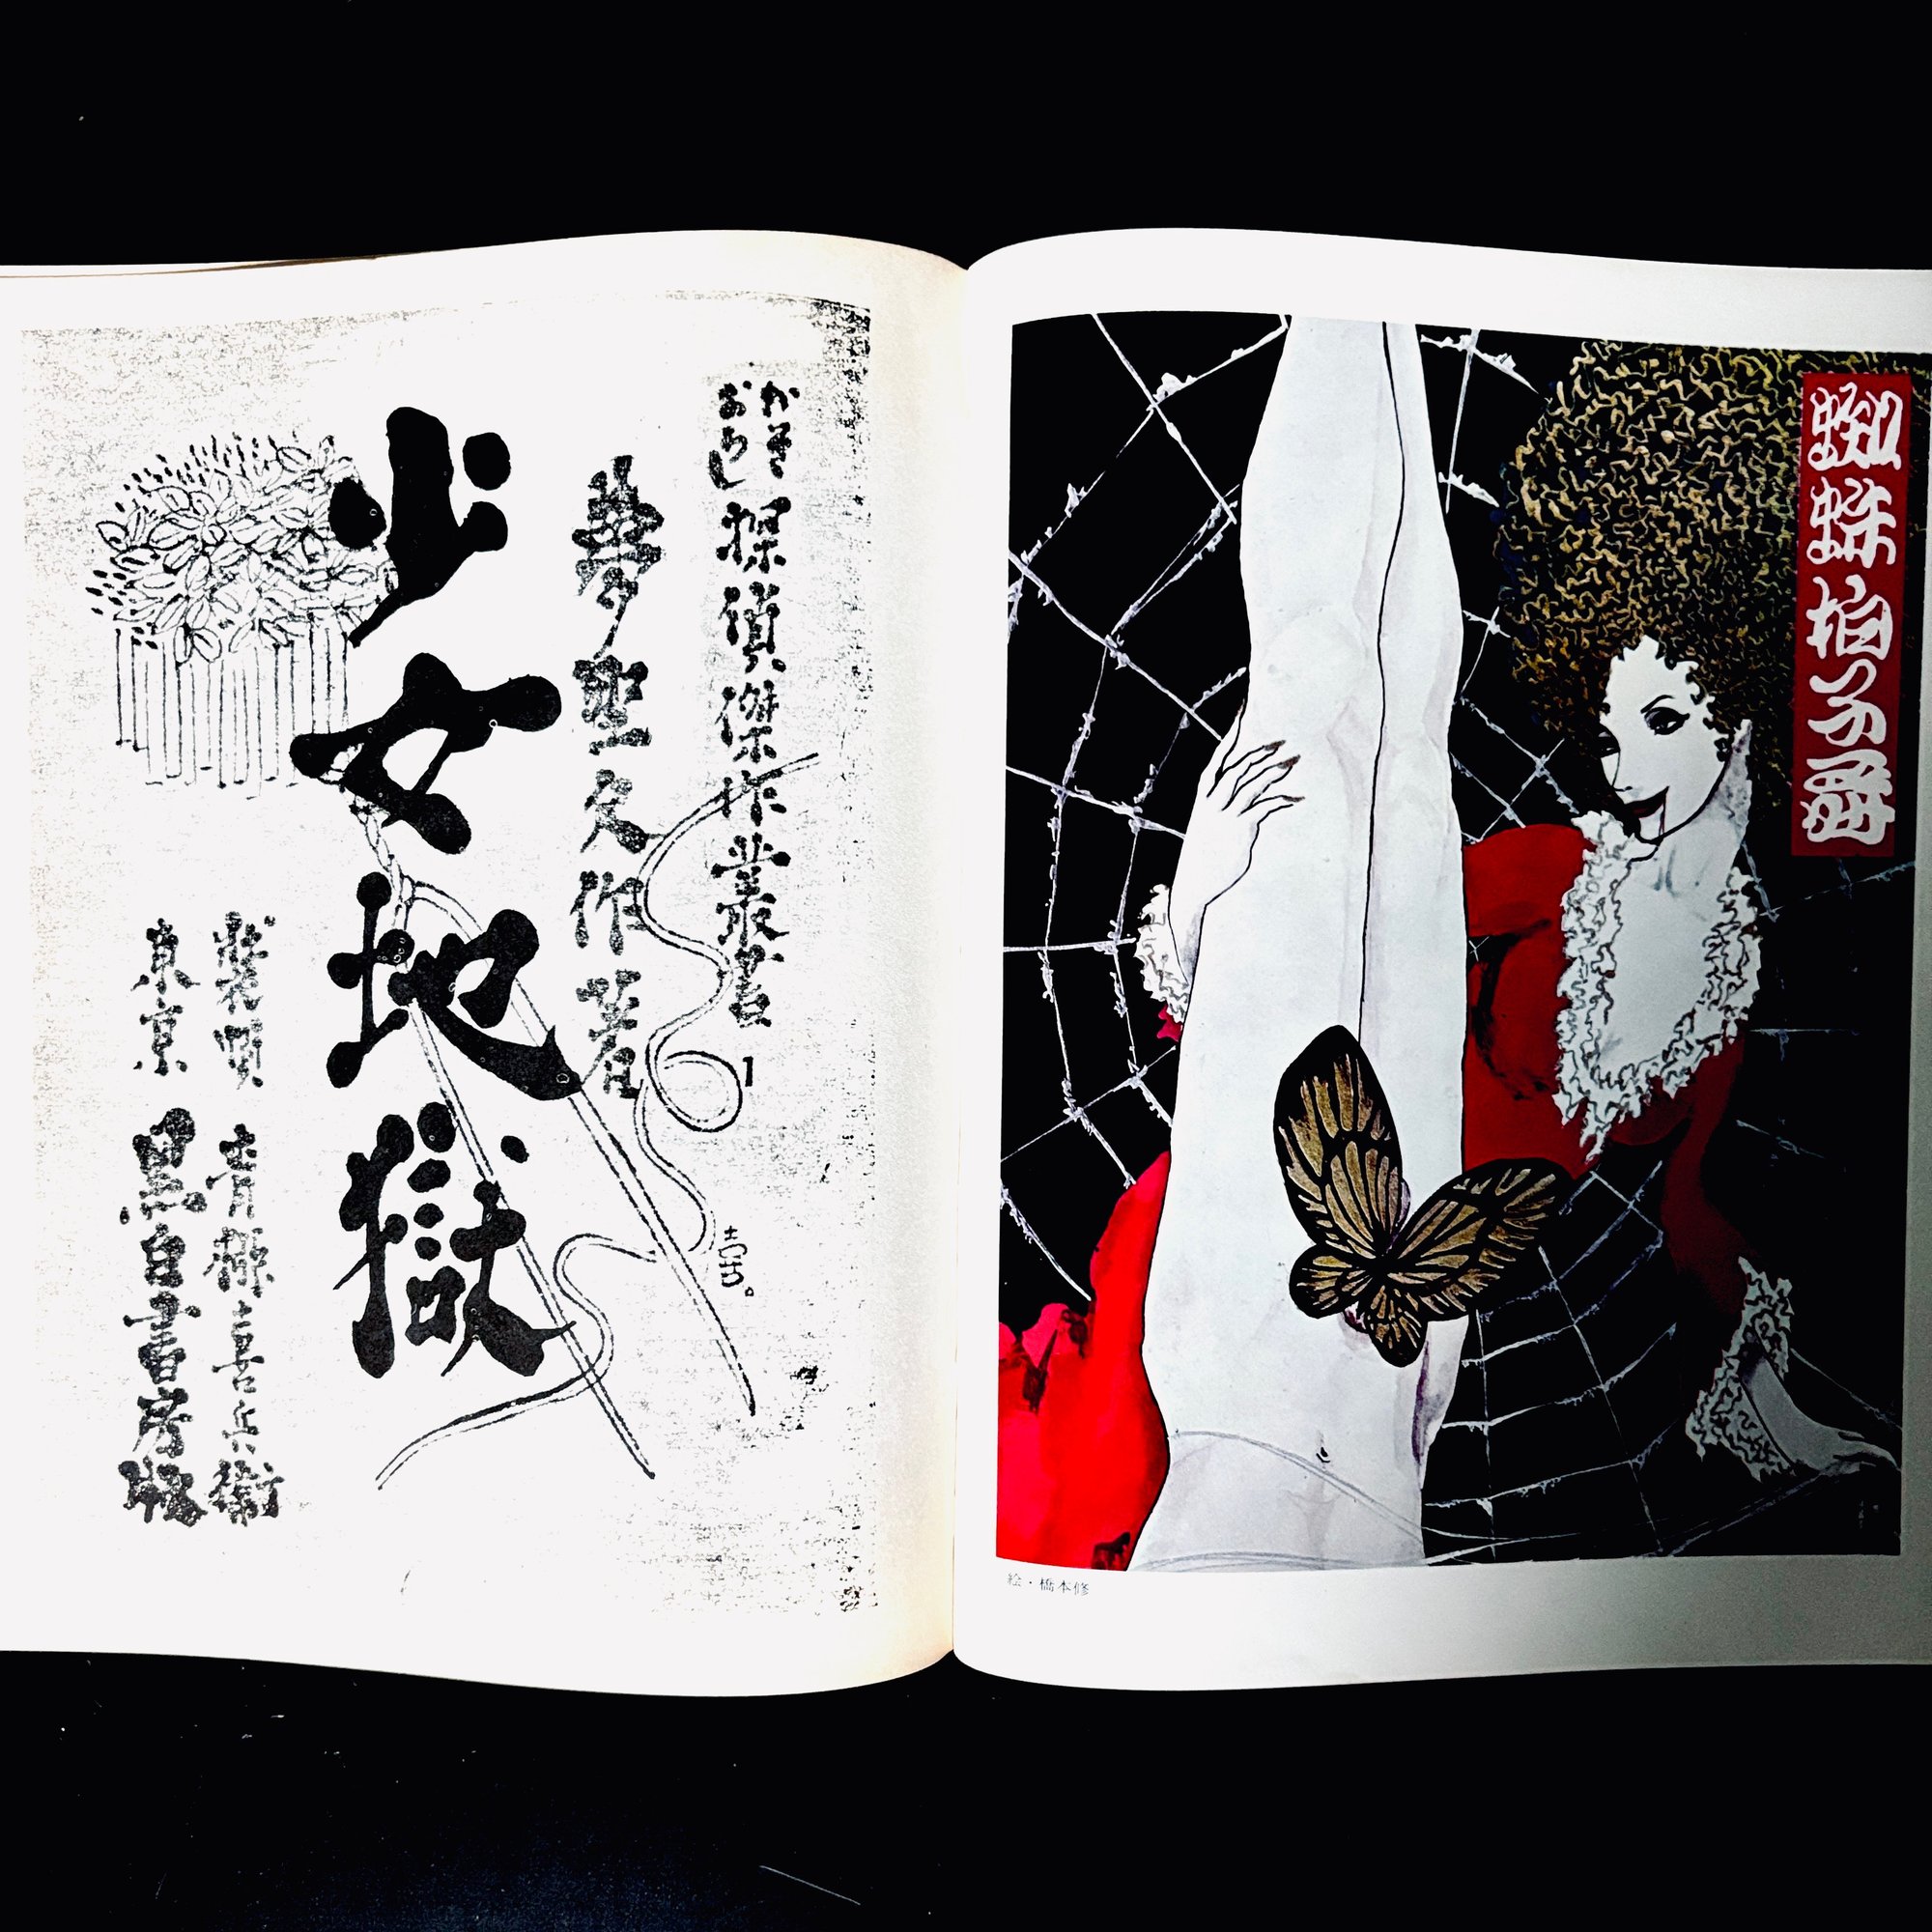 かきおろし 探偵傑作叢書 1
夢埜久作著
少女地獄
裝幀 青柳喜兵衛
東京 黑白書房版
蜘蛛拍子舞
絵・橋本修